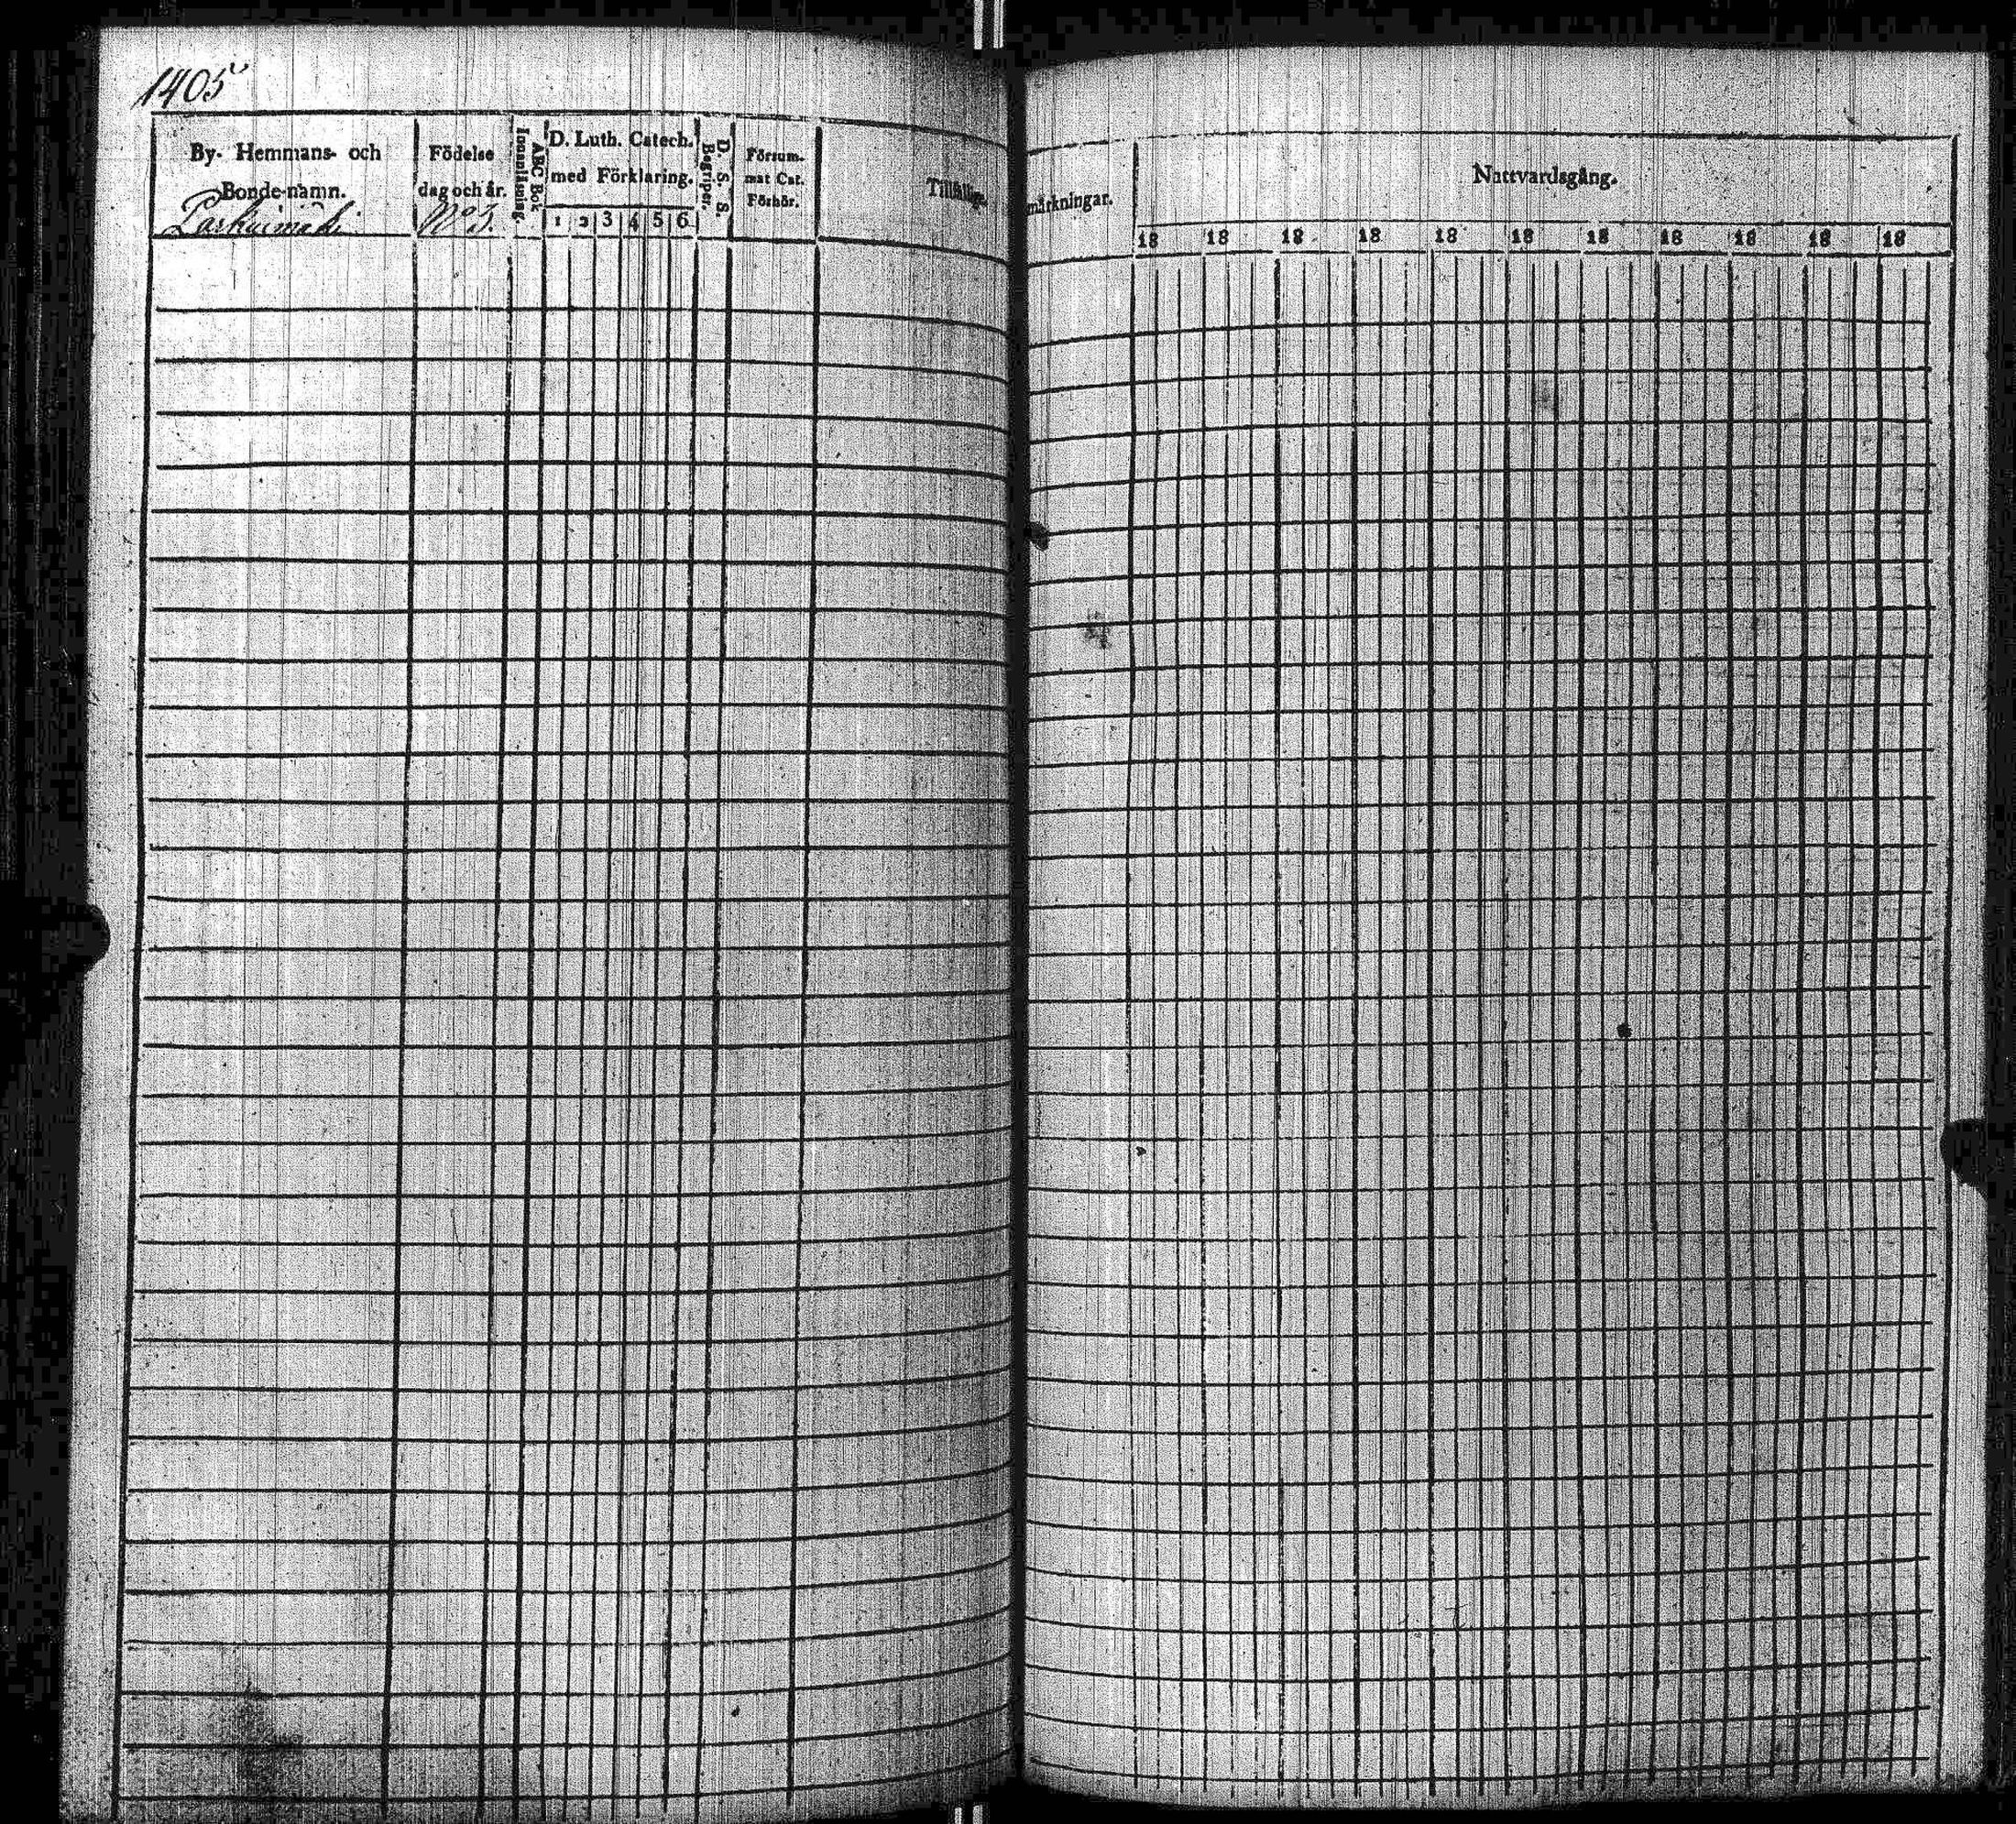 1405
By- Hemmans- och
Bonde-namn.
Födelse
dag och år.
No 3.
ABC Bok
Innanläsning.
D. Luth. Catech.
med Förklaring.
1 2 3 4 5 6
D. S. S.
Begriper.
Försum-
mat Cat.
Förhör.
Tillfällige
märkningar.
Nattvardsgång.
18 18 18 18 18 18 18 18 18 18 18